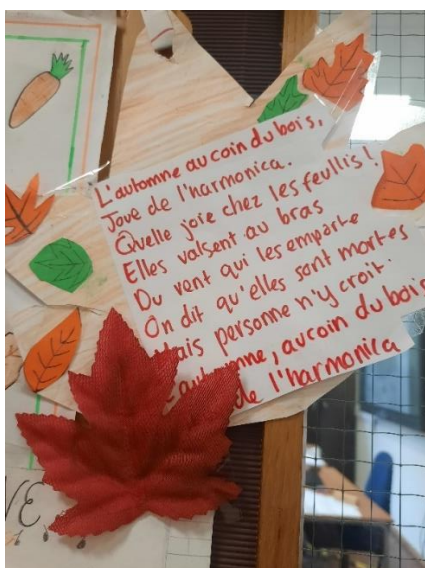 L'automne au coin du bois,
Joue de l'harmonica.
Quelle joie chez les feullis!
Elles valsent au bras
Du vent qui les emparte
On dit qu'elles sont mortes
Mais personne n'y croit.
L'automne, au coin du bois
de l'harmonica
VE